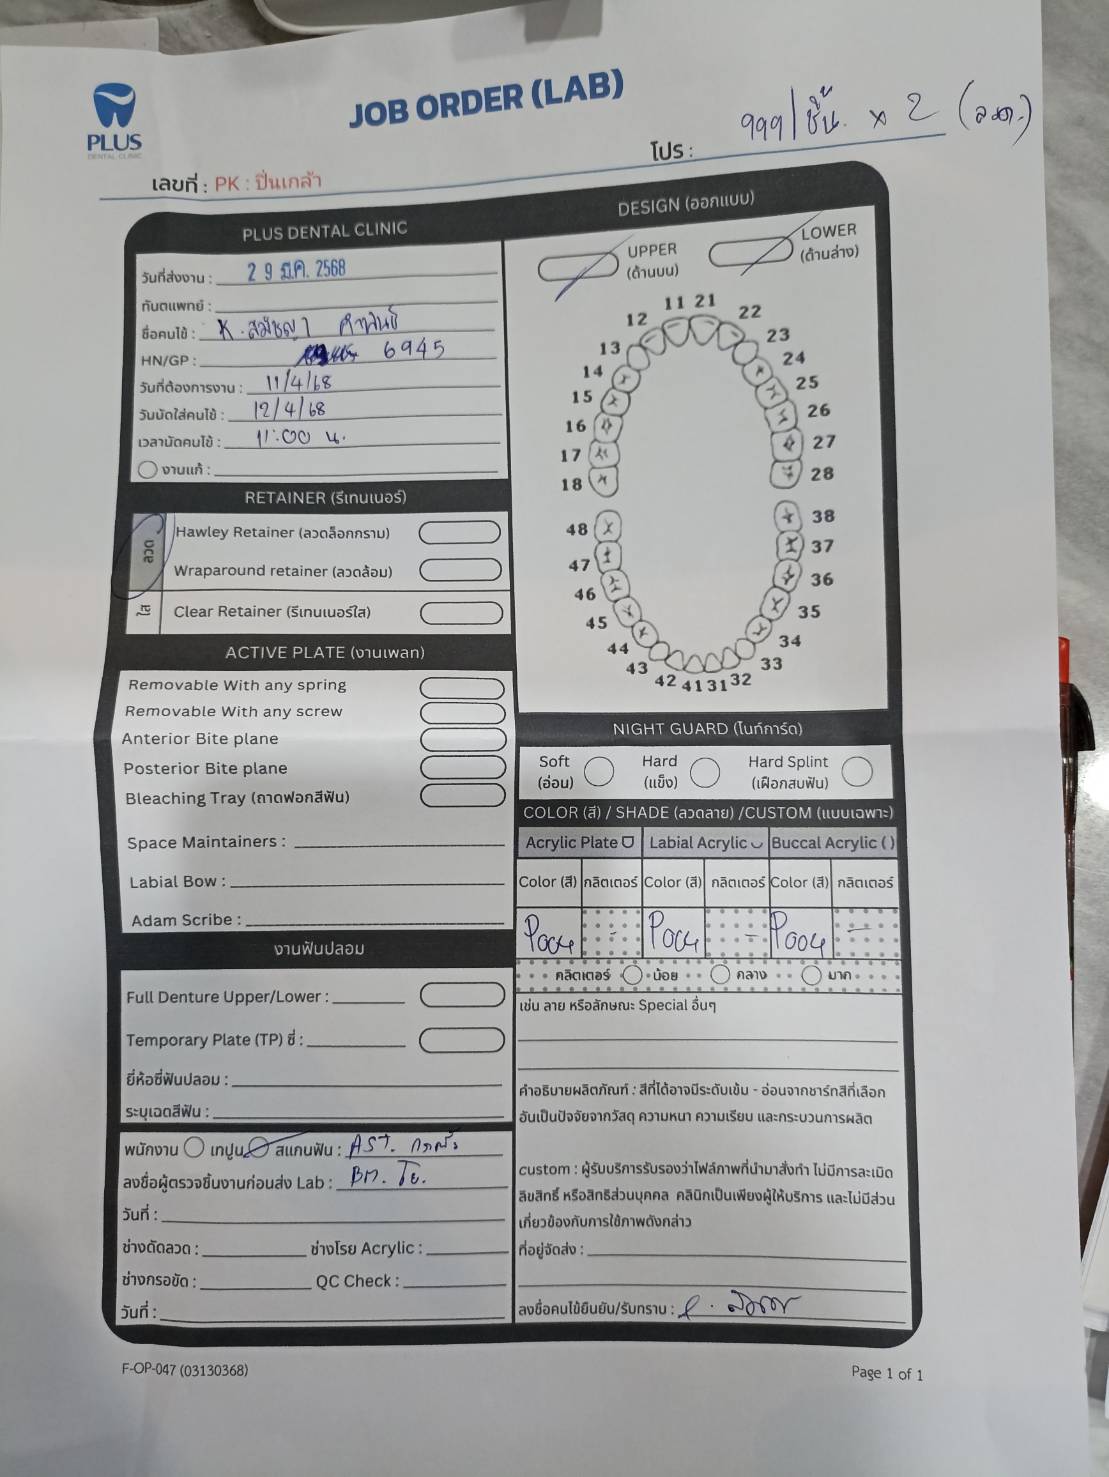 JOB ORDER (LAB)
PLUS
DENTAL CLINIC
โปร : 999/ชิ้น. x 2 (ลด.)
เลขที่ : PK : ปิ่นเกล้า
PLUS DENTAL CLINIC
วันที่ส่งงาน : 29 มี.ค. 2568
ทันตแพทย์ :
ชื่อคนไข้ : K.
HN/GP : 6945
วันที่ต้องการงาน : 11/4/68
วันนัดใส่คนไข้ : 12/4/68
เวลานัดคนไข้ : 11:00 น.
งานแก้ :
RETAINER (รีเทนเนอร์)
ลวด
Hawley Retainer (ลวดล็อกกราม)
Wraparound retainer (ลวดล้อม)
ใส
Clear Retainer (รีเทนเนอร์ใส)
ACTIVE PLATE (งานเพลท)
Removable With any spring
Removable With any screw
Anterior Bite plane
Posterior Bite plane
Bleaching Tray (ถาดฟอกสีฟัน)
Space Maintainers :
Labial Bow :
Adam Scribe :
งานฟันปลอม
Full Denture Upper/Lower :
Temporary Plate (TP) ซี่ :
ยี่ห้อซี่ฟันปลอม :
ระบุเฉดสีฟัน :
พนักงาน เทปูน สแกนฟัน : AST.
ลงชื่อผู้ตรวจชิ้นงานก่อนส่ง Lab :
วันที่ :
ช่างดัดลวด : ช่างโรย Acrylic :
ช่างกรอขัด : QC Check :
วันที่ :
DESIGN (ออกแบบ)
UPPER
(ด้านบน)
LOWER
(ด้านล่าง)
11 21
12 22
13 23
14 24
15 25
16 26
17 27
18 28
48 38
47 37
46 36
45 35
44 34
43 33
42 41 31 32
NIGHT GUARD (ไนท์การ์ด)
Soft
(อ่อน)
Hard
(แข็ง)
Hard Splint
(เฝือกสบฟัน)
COLOR (สี) / SHADE (ลวดลาย) /CUSTOM (แบบเฉพาะ)
Acrylic Plate Labial Acrylic Buccal Acrylic ( )
Color (สี) กลิตเตอร์ Color (สี) กลิตเตอร์ Color (สี) กลิตเตอร์
- - -
กลิตเตอร์ น้อย กลาง มาก
เช่น ลาย หรือลักษณะ Special อื่นๆ
คำอธิบายผลิตภัณฑ์ : สีที่ได้อาจมีระดับเข้ม - อ่อนจากชาร์ทสีที่เลือก
อันเป็นปัจจัยจากวัสดุ ความหนา ความเรียบ และกระบวนการผลิต
custom : ผู้รับบริการรับรองว่าไฟล์ภาพที่นำมาสั่งทำ ไม่มีการละเมิด
ลิขสิทธิ์ หรือสิทธิส่วนบุคคล คลินิกเป็นเพียงผู้ให้บริการ และไม่มีส่วน
เกี่ยวข้องกับการใช้ภาพดังกล่าว
ที่อยู่จัดส่ง :
ลงชื่อคนไข้ยืนยัน/รับทราบ :
F-OP-047 (03130368)
Page 1 of 1